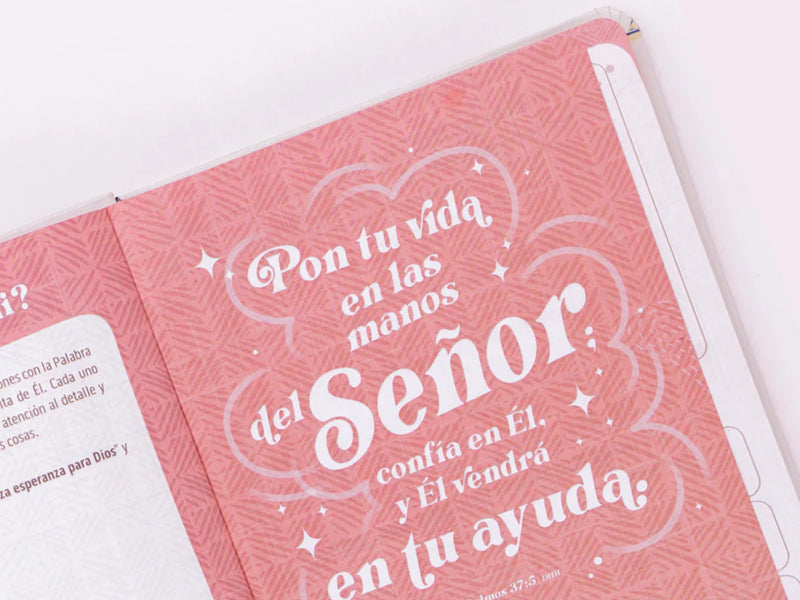 ones con la Palabra
lta de Él. Cada uno
atención al detalle y
s cosas.
za esperanza para Dios" y
Pon tu vida
en las
manos
del Señor;
confía en Él,
y Él vendrá
en tu ayuda.
37:5, DHH